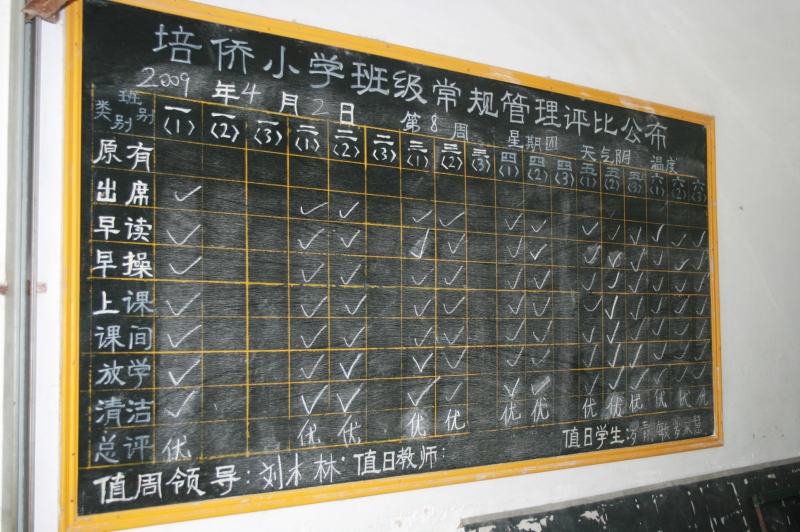 培侨小学班级常规管理评比公布
2009年4月2日 第8周 星期四 天气阴 温度
班别 类别 一(1) 一(2) 一(3) 二(1) 二(2) 二(3) 三(1) 三(2) 三(3) 四(1) 四(2) 四(3) 五(1) 五(2) 五(3) 六(1) 六(2) 六(3)
原有
出席 ✓ ✓ ✓ ✓ ✓ ✓ ✓ ✓ ✓ ✓ ✓ ✓ ✓
早读 ✓ ✓ ✓ ✓ ✓ ✓ ✓ ✓ ✓ ✓ ✓ ✓ ✓
早操 ✓ ✓ ✓ ✓ ✓ ✓ ✓ ✓ ✓ ✓ ✓ ✓ ✓
上课 ✓ ✓ ✓ ✓ ✓ ✓ ✓ ✓ ✓ ✓ ✓ ✓ ✓
课间 ✓ ✓ ✓ ✓ ✓ ✓ ✓ ✓ ✓ ✓ ✓ ✓ ✓
放学 ✓ ✓ ✓ ✓ ✓ ✓ ✓ ✓ ✓ ✓ ✓ ✓ ✓
清洁 ✓ ✓ ✓ ✓ ✓ ✓ ✓ ✓ ✓ ✓ ✓ ✓ ✓
总评 优 优 优 优 优 优 优 优 优 优 优 优 优
值周领导：刘木林 值日教师： 值日学生：